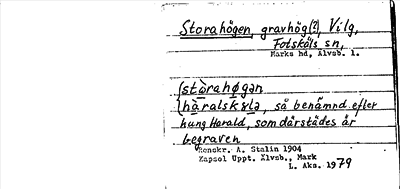 Storahögen, gravhög(?), Vilg,
Fotskäls sn,
Marks hd, Älvsb. l.
(stòrahøgan
(hàralskʉla, så benämnd efter
kung Harald, som därstädes är
begraven
Renskr. A. Stalin 1904
Kapsel Uppt. Älvsb., Mark
L. Aks. 1979